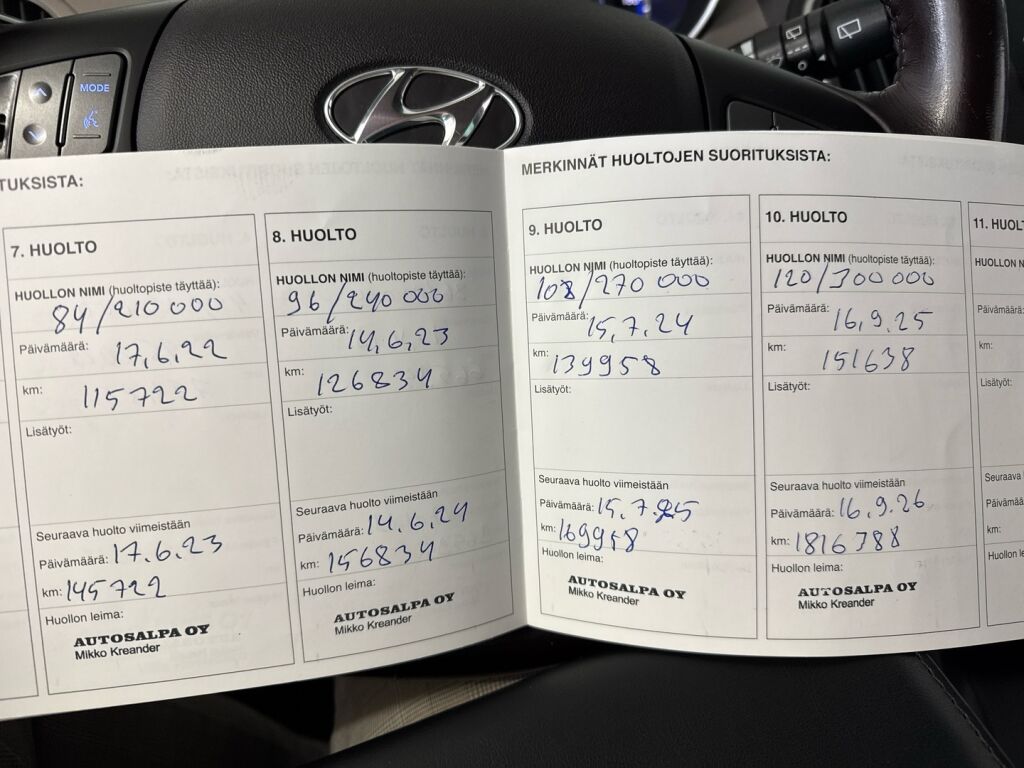 MODE
TUKSISTA:
7. HUOLTO
HUOLLON NIMI (huoltopiste täyttää):
84/210 000
Päivämäärä: 17.6.22
km: 115722
Lisätyöt:
Seuraava huolto viimeistään
Päivämäärä: 17.6.23
km: 145722
Huollon leima:
AUTOSALPA OY
Mikko Kreander
8. HUOLTO
HUOLLON NIMI (huoltopiste täyttää):
96/240 000
Päivämäärä: 14.6.23
km: 126834
Lisätyöt:
Seuraava huolto viimeistään
Päivämäärä: 14.6.24
km: 156834
Huollon leima:
AUTOSALPA OY
Mikko Kreander
MERKINNÄT HUOLTOJEN SUORITUKSISTA:
9. HUOLTO
HUOLLON NIMI (huoltopiste täyttää):
108/270 000
Päivämäärä: 15.7.24
km: 139958
Lisätyöt:
Seuraava huolto viimeistään
Päivämäärä: 15.7.25
km: 169958
Huollon leima:
AUTOSALPA OY
Mikko Kreander
10. HUOLTO
HUOLLON NIMI (huoltopiste täyttää):
120/300 000
Päivämäärä: 16.9.25
km: 151638
Lisätyöt:
Seuraava huolto viimeistään
Päivämäärä: 16.9.26
km: 1816388
Huollon leima:
AUTOSALPA OY
Mikko Kreander
11. HUOLT
HUOLLON N
Päivämäärä:
km:
Lisätyöt:
Seuraava h
Päivämäärä
km:
Huollon le